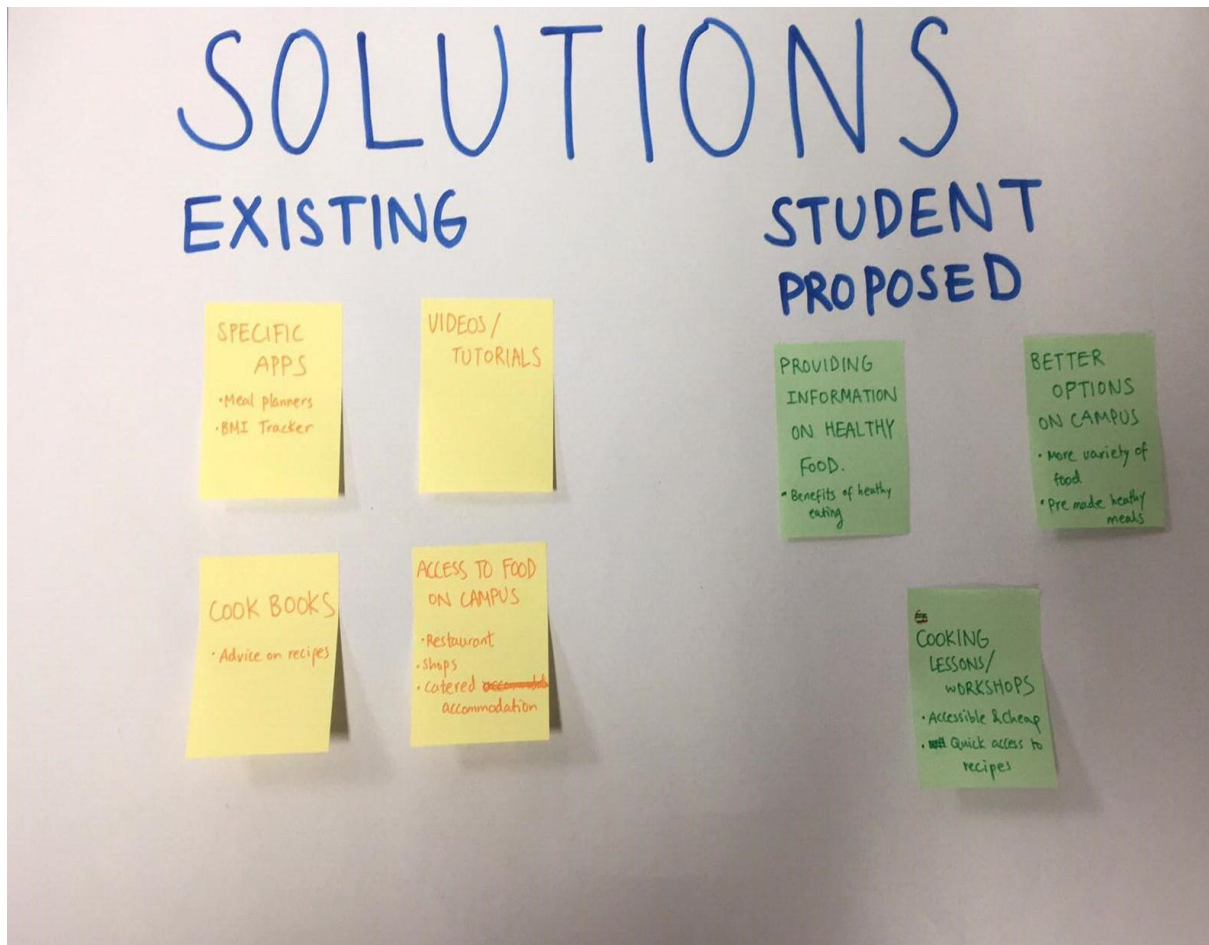 SOLUTIONS
EXISTING
SPECIFIC
APPS
• Meal planners
• BMI Tracker
VIDEOS/
TUTORIALS
COOK BOOKS
• Advice on recipes
ACCESS TO FOOD
ON CAMPUS
• Restaurant
• Shops
• Catered
accommodation
STUDENT
PROPOSED
PROVIDING
INFORMATION
ON HEALTHY
FOOD.
• Benefits of heathy
eating
BETTER
OPTIONS
ON CAMPUS
• More variety of
food
• Pre made heathy
meals
COOKING
LESSONS/
WORKSHOPS
• Accessible & Cheap
• Quick access to
recipes